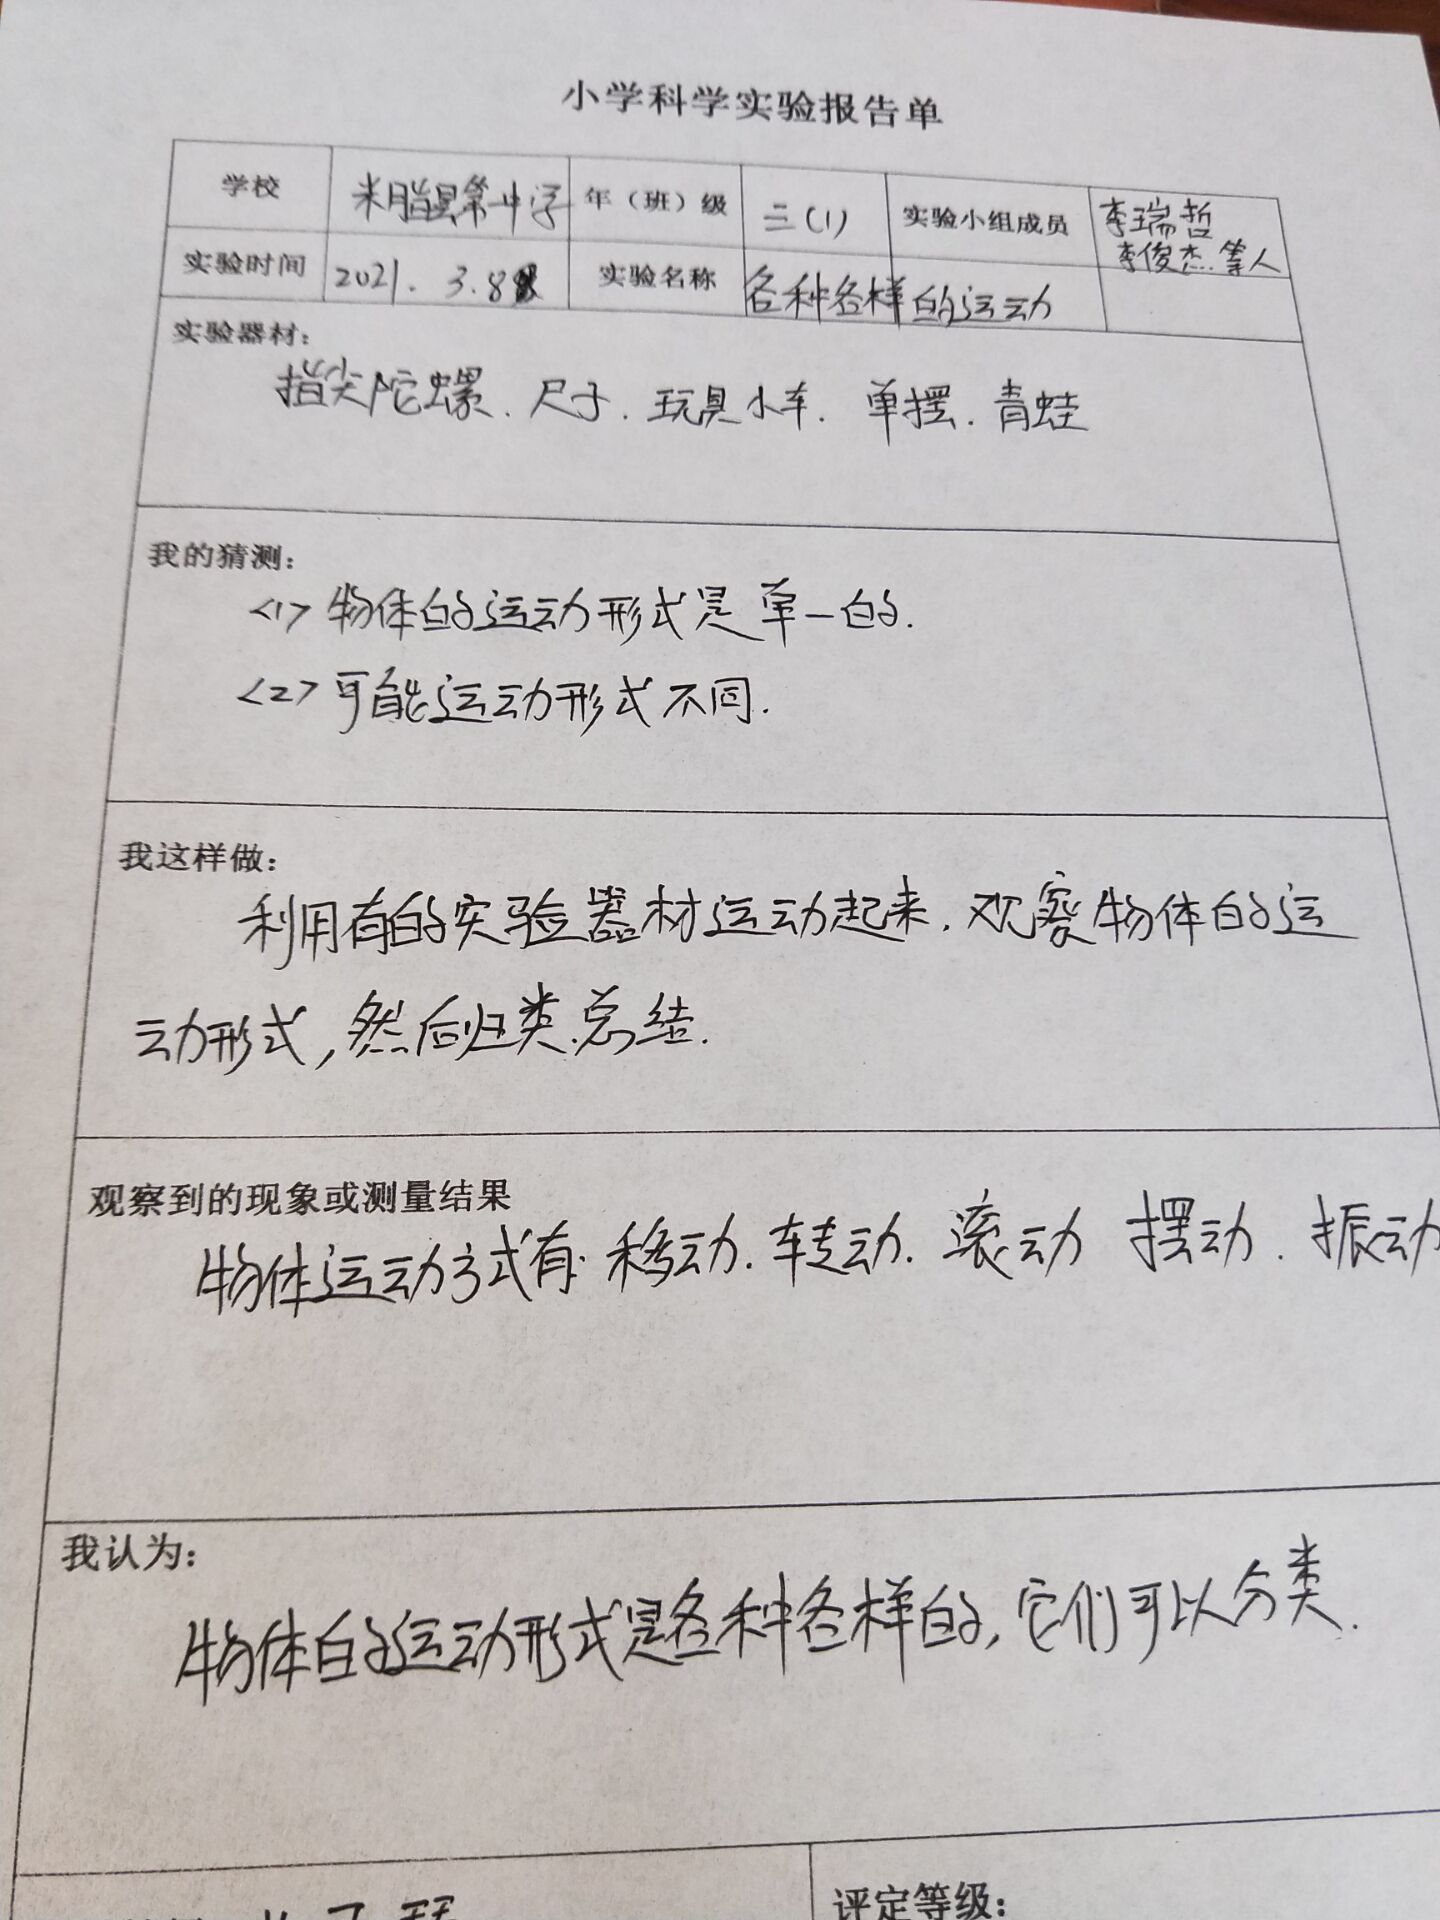 小学科学实验报告单
学校 米脂县第一中学 年（班）级 三(1) 实验小组成员 李瑞哲 李俊杰.等人
实验时间 2021.3.8 实验名称 各种各样的运动
实验器材：
指尖陀螺.尺子.玩具小车.单摆.青蛙
我的猜测：
<1>物体的运动形式是单一的.
<2>可能运动形式不同.
我这样做：
利用有的实验器材运动起来.观察物体的运
动形式,然后归类.总结.
观察到的现象或测量结果
物体运动方式有.移动.转动.滚动 摆动.振动
我认为：
物体的运动形式是各种各样的,它们可以分类.
评定等级：